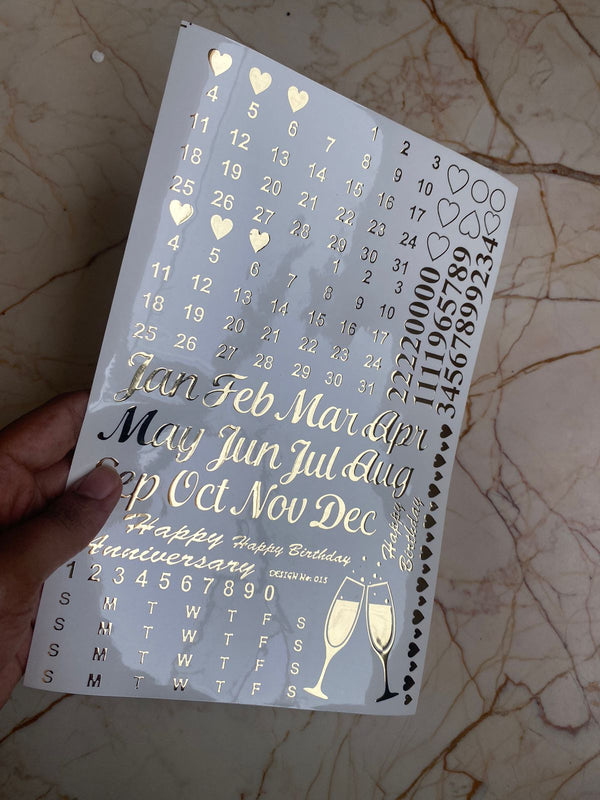 1 2 3
4 5 6 7 8 9 10
11 12 13 14 15 16 17
18 19 20 21 22 23 24
25 26 27 28 29 30 31
1 2 3
4 5 6 7 8 9 10
11 12 13 14 15 16 17
18 19 20 21 22 23 24
25 26 27 28 29 30 31
22220000
1111965789
34567899234
Jan Feb Mar Apr
May Jun Jul Aug
Sep Oct Nov Dec
Happy
Anniversary
Happy Birthday
DESIGN No. 015
Happy
Birthday
1 2 3 4 5 6 7 8 9 0
S M T W T F S
S M T W T F S
S M T W T F S
S M T W T F S